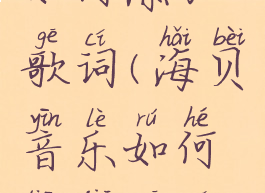 gē cí hǎi bèi
歌词(海贝
yīn lè rú hé
音乐如何